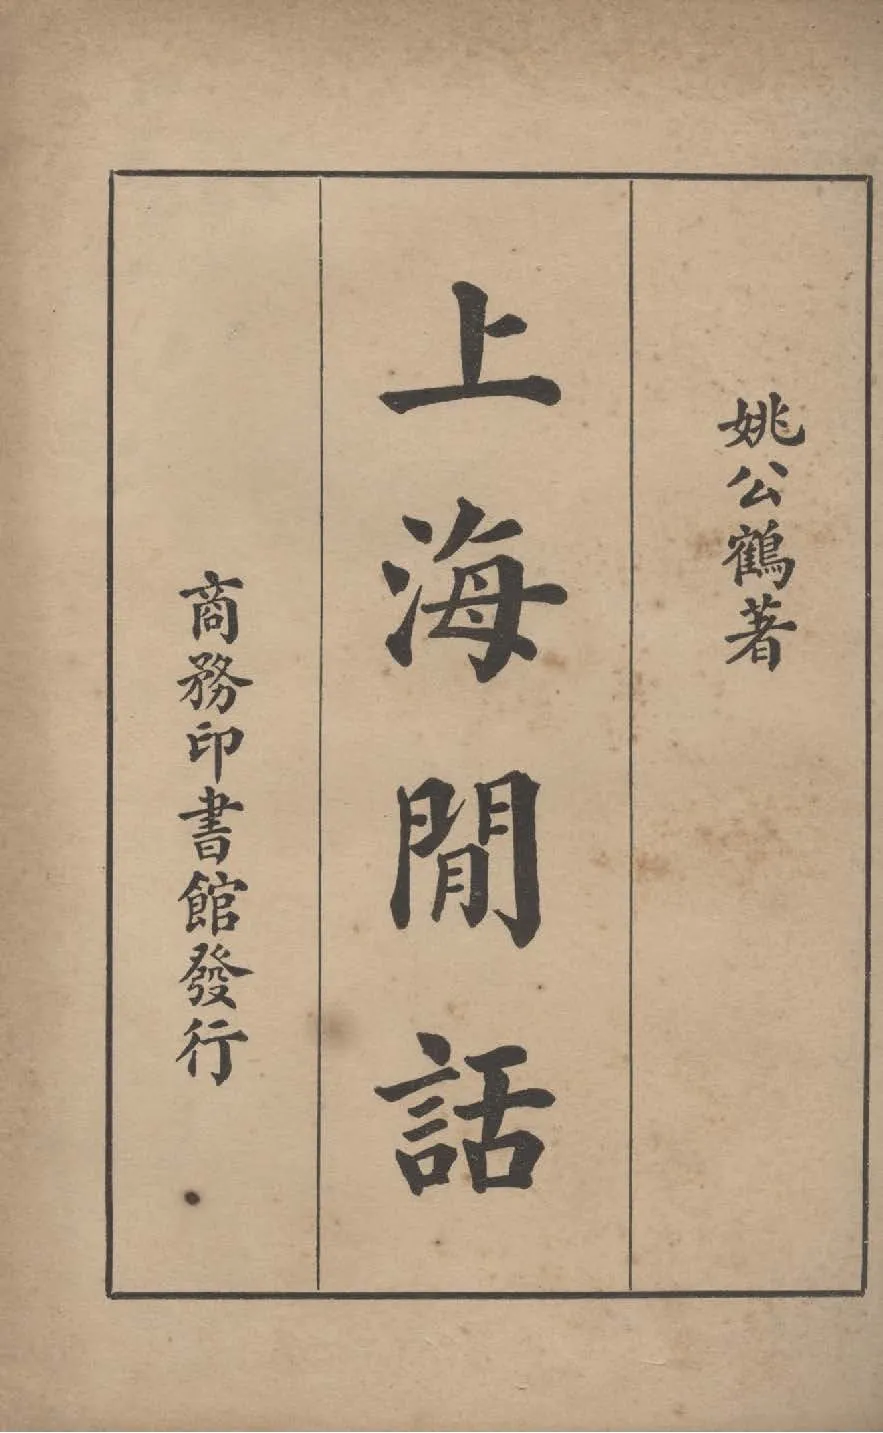 姚公鶴著
上海閒話
商務印書館發行